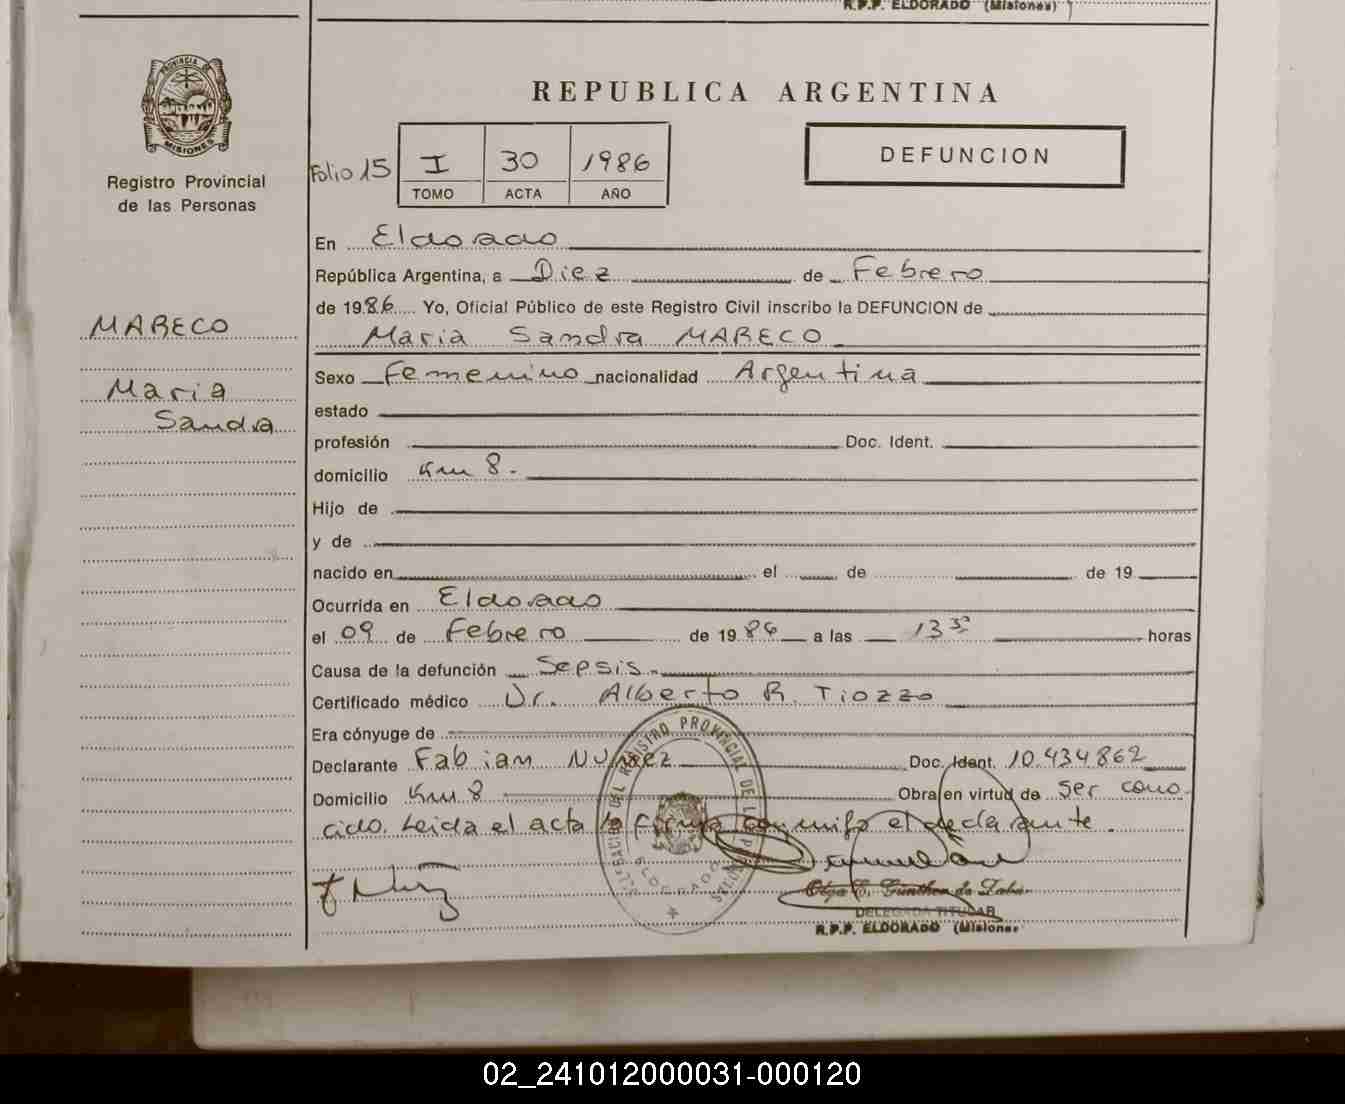 R.P.P. ELDORADO (Misiones)
PROVINCIA DE
MISIONES
Registro Provincial
de las Personas
REPUBLICA ARGENTINA
Folio 15
I 30 1986
TOMO ACTA AÑO
DEFUNCION
En Eldorado
República Argentina, a Diez de Febrero
de 1986 Yo, Oficial Público de este Registro Civil inscribo la DEFUNCION de
Maria Sandra MARECO
MARECO
Maria
Sandra
Sexo Femenino nacionalidad Argentina
estado
profesión Doc. Ident.
domicilio Km 8.
Hijo de
y de
nacido en el de de 19
Ocurrida en Eldorado
el 09 de Febrero de 1986 a las 13 30 horas
Causa de la defunción Sepsis.
Certificado médico Dr. Alberto R. Tiozzo
Era cónyuge de
Declarante Fabian NUñez Doc. Ident. 10.434862
Domicilio Km 8 Obra en virtud de Ser cono-
cido. Leida el acta la firma conmigo el declarante.
REGISTRO PROVINCIAL DE
ELDORADO
DELEGADA TITULAR
R.P.P. ELDORADO (Misiones
02_241012000031-000120